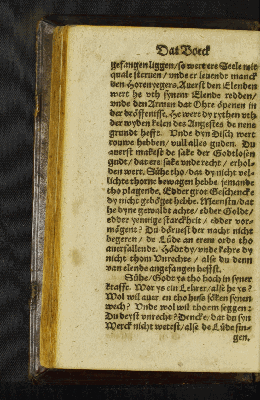 Dat Boeck
gefangen liggen / so wert ere Seele mit
quale steruen / vnde er leuende manck
den Horenyegers. Auerst den Elenden
wert he vth synem Elende redden /
vnde den Armen dat Ohre öpenen in
der dröffenisse. He wert dy rythen vth
der wyden kelen des Angestes de nene
grundt hefft. Vnde dyn Disch wert
rouwe hebben / vull alles guden. Du
auerst makest de sake der Godtlosen
gudt / dat ere sake vnde recht / erhol-
den wert. Sühe tho / dat dy nicht vel-
lichte thorne bewagen hebbe jemande
tho plagende / Edder grot Geschencke
dy nicht geböget hebbe. Meenstu / dat
he dyne gewaldt achte / edder Golde /
edder yennige starckheit / edder vor-
mögent? Du döruest der nacht nicht
begeren / de Lüde an erem orde tho
auerfallende. Hödt dy / vnde kehre dy
nicht thom Vnrechte / alse du denn
van elende angefangen heffst.
Sühe / Godt ys tho hoch in syner
krafft. Wor ys ein Lehrer / alse he ys?
Wol wil auer en tho huse söken synen
wech? Vnde wol wil tho em seggen:
Du deyst vnrecht? Dencke / dat du syn
Werck nicht wetest / alse de Lüde sin-
gen.